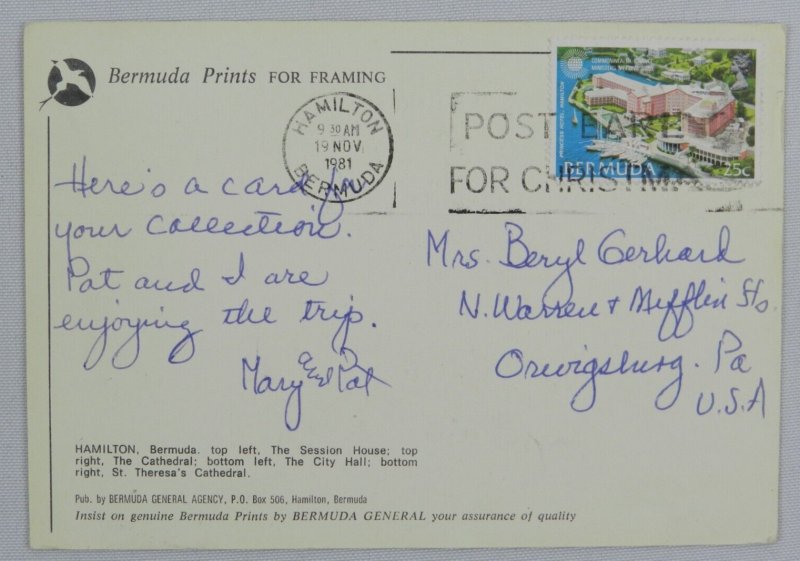 Bermuda Prints FOR FRAMING
HAMILTON
9 30 AM
19 NOV
1981
BERMUDA
POST EARLY
FOR CHRISTMAS
COMMONWEALTH FINANCE
MINISTERS MEETING
PRINCESS HOTEL, HAMILTON
BERMUDA 25c
Here's a card for
your collection.
Pat and I are
enjoying the trip.
Mary and Pat
Mrs. Beryl Gerhard
N. Warren + Mifflin Sts.
Orwigsburg. Pa
U.S.A
HAMILTON, Bermuda. top left, The Session House; top
right, The Cathedral; bottom left, The City Hall; bottom
right, St. Theresa's Cathedral.
Pub. by BERMUDA GENERAL AGENCY, P.O. Box 506, Hamilton, Bermuda
Insist on genuine Bermuda Prints by BERMUDA GENERAL your assurance of quality